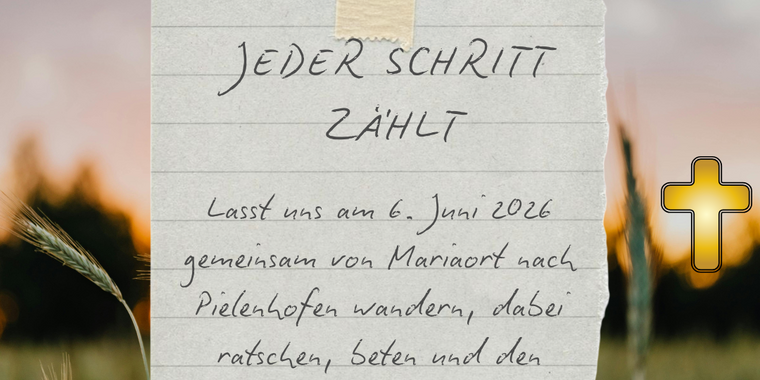 JEDER SCHRITT
ZÄHLT
Lasst uns am 6. Juni 2026
gemeinsam von Mariaort nach
Pielenhofen wandern, dabei
ratschen, beten und den